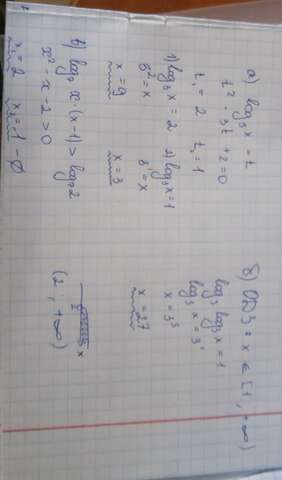 а) log₃x = t
t² - 3t + 2 = 0
t₁ = 2 t₂ = 1
1) log₃x = 2 2) log₃x = 1
3² = x 3¹ = x
x = 9 x = 3
б) ОДЗ: x ∈ [1, +∞)
log₃ log₃ x = 1
log₃ x = 3¹
x = 3³
x = 27
в) log₂ x · (x-1) > log₂2
x² - x - 2 > 0
x₁ = 2 x₂ = -1 - ∅
x
(2; +∞)